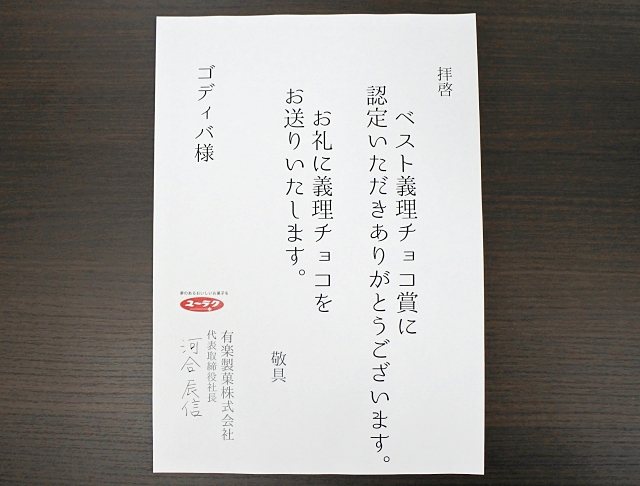 拝啓
ベスト義理チョコ賞に
認定いただきありがとうございます。
お礼に義理チョコを
お送りいたします。
敬具
有楽製菓株式会社
代表取締役社長
河合辰信
ゴディバ様
夢のあるおいしいお菓子を
ユーラク